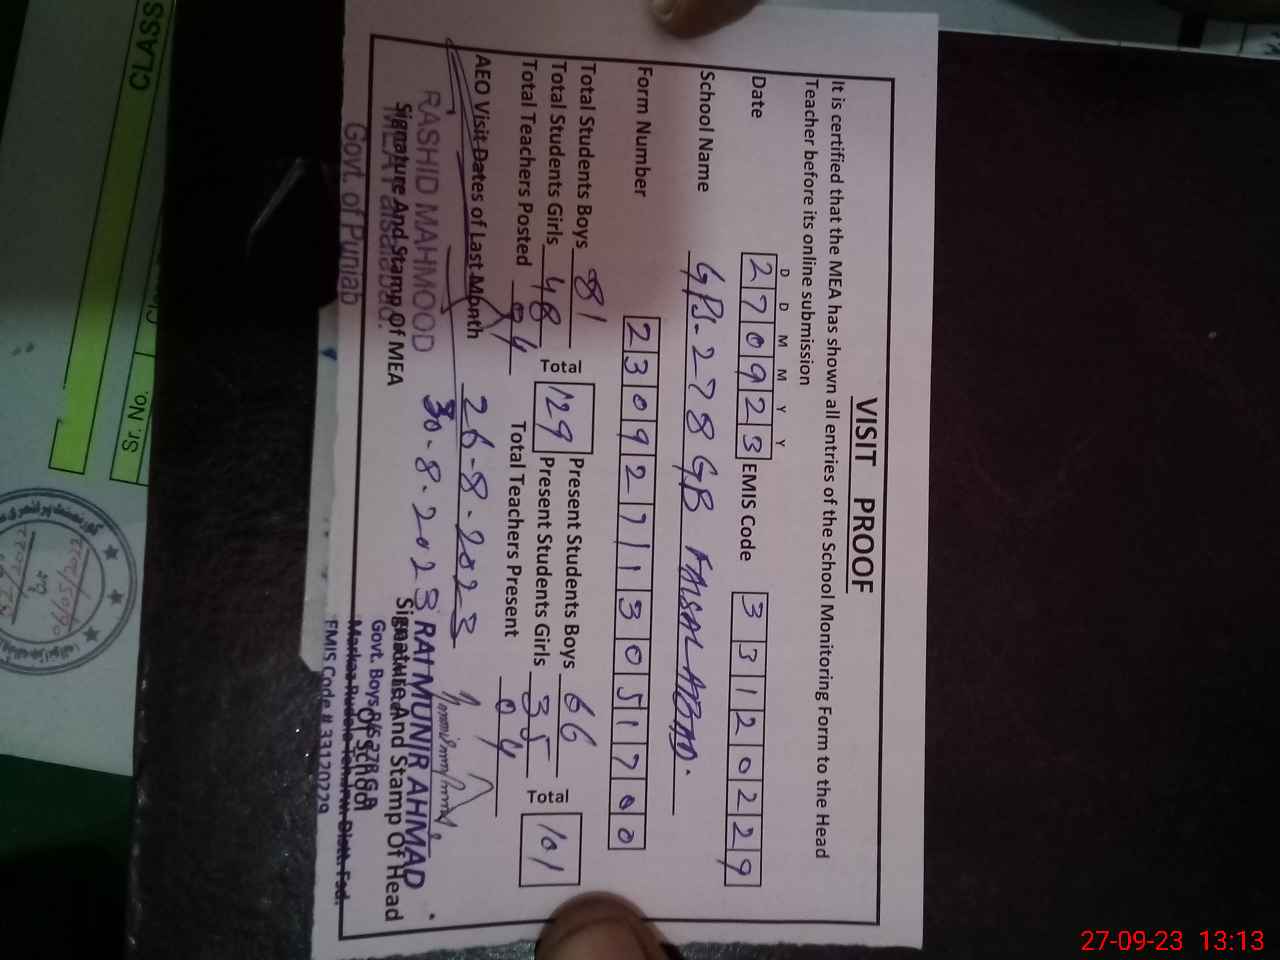 VISIT PROOF
It is certified that the MEA has shown all entries of the School Monitoring Form to the Head
Teacher before its online submission
D D M M Y Y
Date 270923 EMIS Code 33120229
School Name GPS. 278 GB FAISALABAD.
Form Number 230927113051700
Total Students Boys 81 Total 129 Present Students Boys 66 Total 101
Total Students Girls 48 Present Students Girls 35
Total Teachers Posted 04 Total Teachers Present 04
AEO Visit Dates of Last Month 26-8-2023
30-8-2023
RASHID MAHMOOD
Signature And Stamp Of MEA
MEA Faisalabad.
Govt. of Punjab
RAI MUNIR AHMAD
Signature And Stamp Of Head
Of School
Govt. Boys P/S 278 G.B
EMIS Code # 33120229
CLASS
Sr. No.
27-09-23 13:13